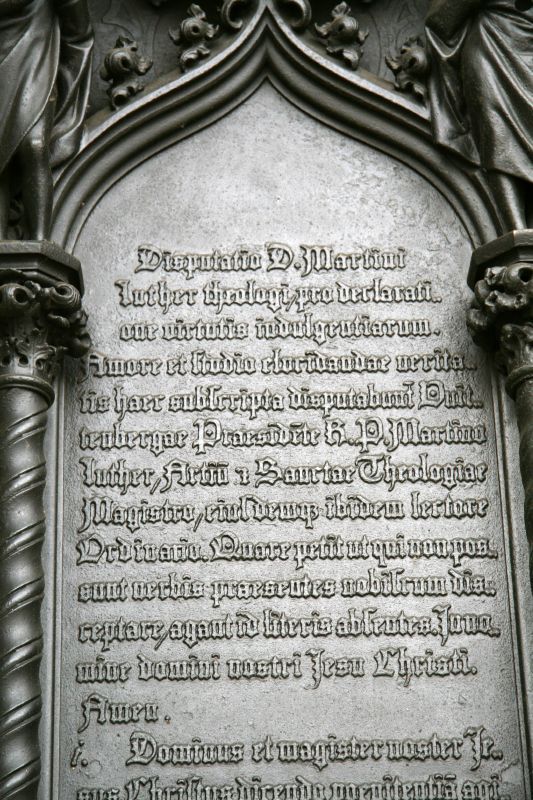 Disputatio D. Martini
Luther theologi, pro declarati-
one virtutis indulgentiarum.
Amore et studio elucidandae verita-
tis haec subscripta disputabunt̄ Vuit-
tenbergae Praesidēte R. P. Martino
Luther, Artiū & Sanctae Theologiae
Magistro, eiusdemq; ibidem lectore
Ordinario. Quare petit ut qui non pos-
sunt verbis praesentes nobiscum dis-
ceptare, agant id literis absentes. In no-
mine domini nostri Jesu Christi.
Amen.
i. Dominus et magister noster Je-
sus Christus dicendo poenitentiā agi